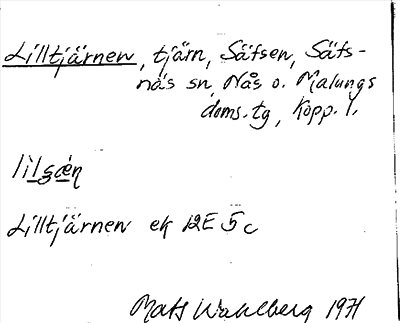 Lilltjärnen, tjärn, Säfsen, Säfs-
näs sn, Nås o. Malungs
doms. tg, Kopp. l.
lìlʒæ̀n
Lilltjärnen ek 12E 5c
Mats Wahlberg 1971